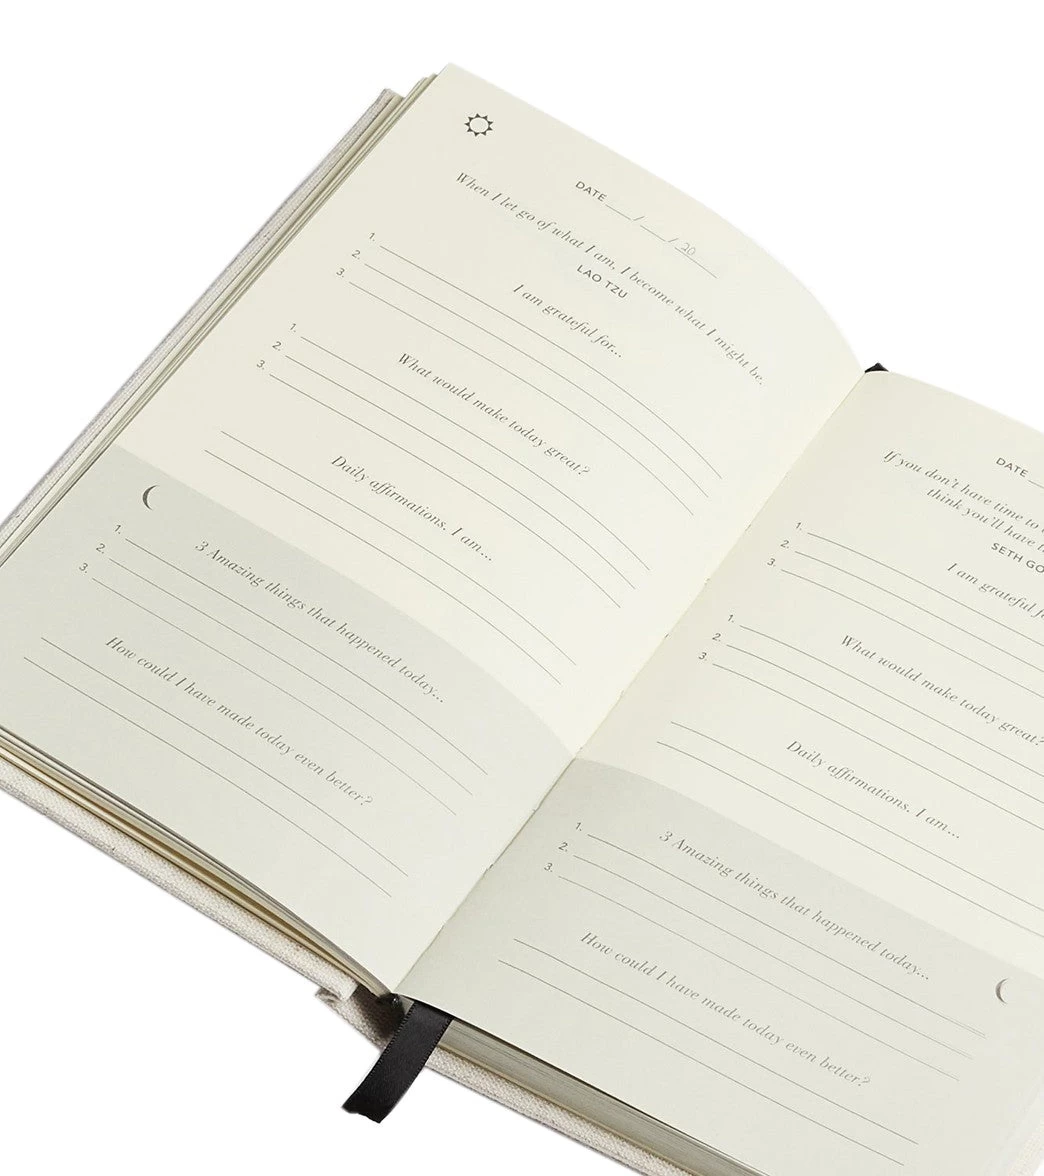 DATE ___/___/ 20___
When I let go of what I am, I become what I might be.
LAO TZU
I am grateful for...
1.
2.
3.
What would make today great?
1.
2.
3.
Daily affirmations. I am...
3 Amazing things that happened today...
1.
2.
3.
How could I have made today even better?
DATE _
If you don't have time to
think you'll have
SETH GO
I am grateful
1.
2.
3.
What would make today great?
1.
2.
3.
Daily affirmations. I am...
3 Amazing things that happened today...
1.
2.
3.
How could I have made today even better?